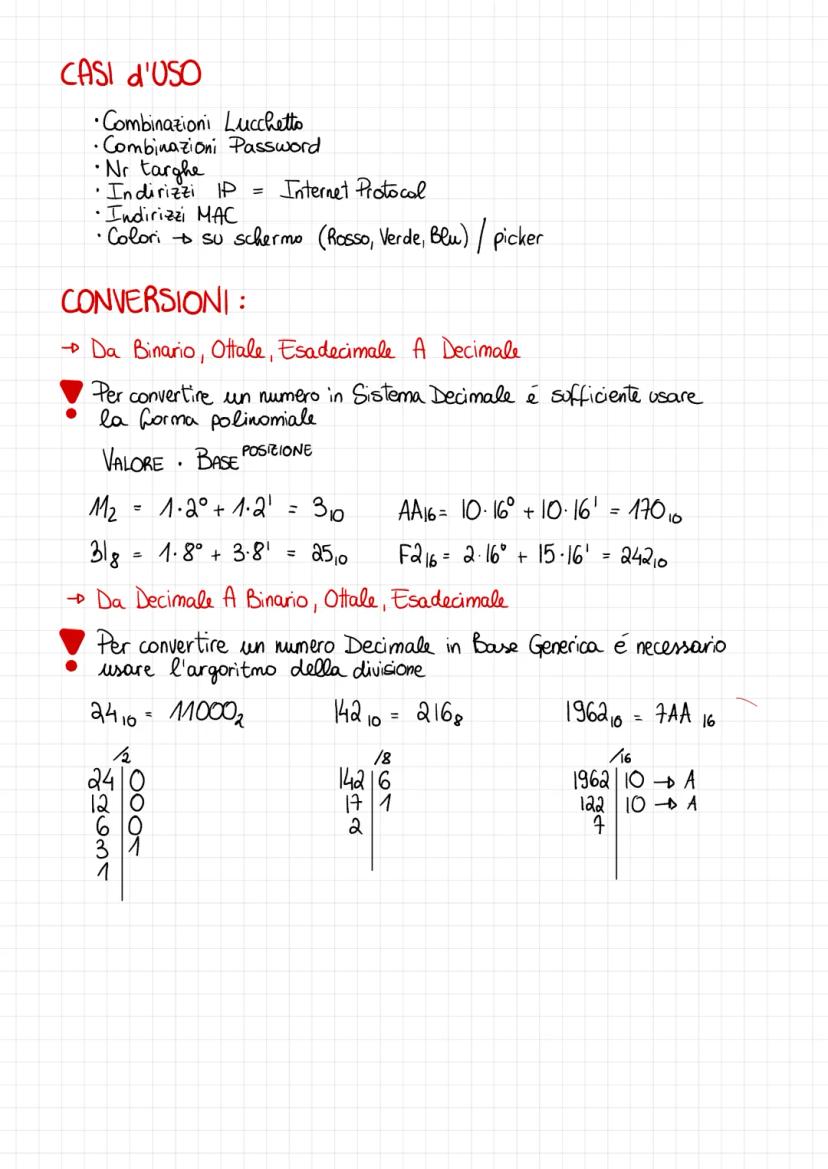 CASI d'USO
· Combinazioni Lucchetto
· Combinazioni Password
· Nr targhe
· Indirizzi IP = Internet Protocol
· Indirizzi MAC
· Colori → su schermo (Rosso, Verde, Blu) / picker
CONVERSIONI :
→ Da Binario, Ottale, Esadecimale A Decimale
! Per convertire un numero in Sistema Decimale é sufficiente usare
la forma polinomiale
VALORE · BASE^POSIZIONE
11₂ = 1·2⁰ + 1·2¹ = 3₁₀ AA₁₆ = 10·16⁰ + 10·16¹ = 170₁₀
31₈ = 1·8⁰ + 3·8¹ = 25₁₀ F2₁₆ = 2·16⁰ + 15·16¹ = 242₁₀
→ Da Decimale A Binario, Ottale, Esadecimale
! Per convertire un numero Decimale in Base Generica é necessario
usare l'argoritmo della divisione
24₁₀ = 11000₂ 142₁₀ = 216₈ 1962₁₀ = 7AA₁₆
/2 /8 /16
24 | 0 142 | 6 1962 | 10 → A
12 | 0 17 | 1 122 | 10 → A
6 | 0 2 | 7 |
3 | 1
1 |